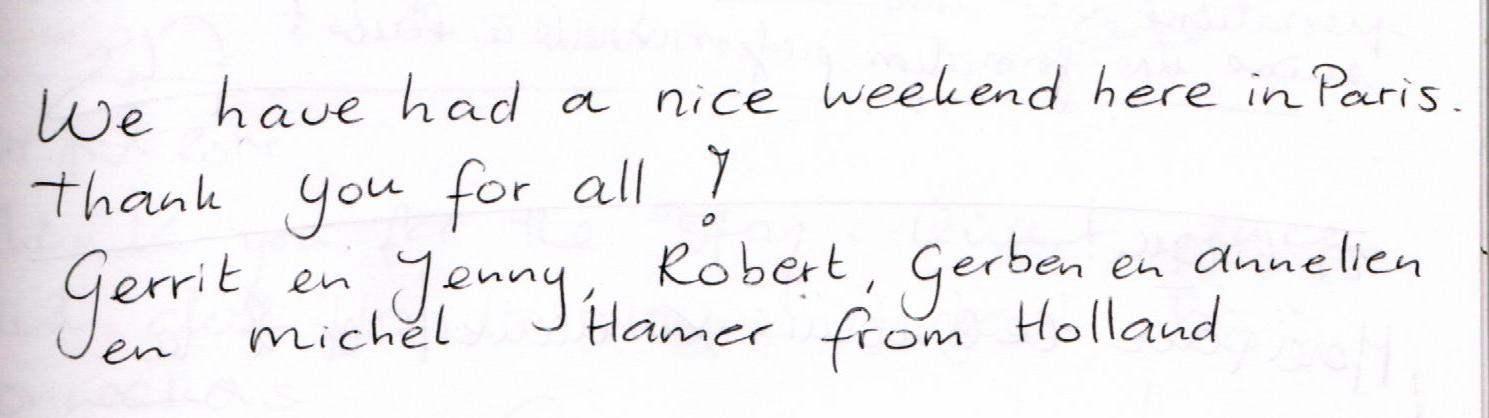 We have had a nice weekend here in Paris.
Thank you for all !
Gerrit en Jenny, Robert, Gerben en Annelien
en Michel Hamer from Holland